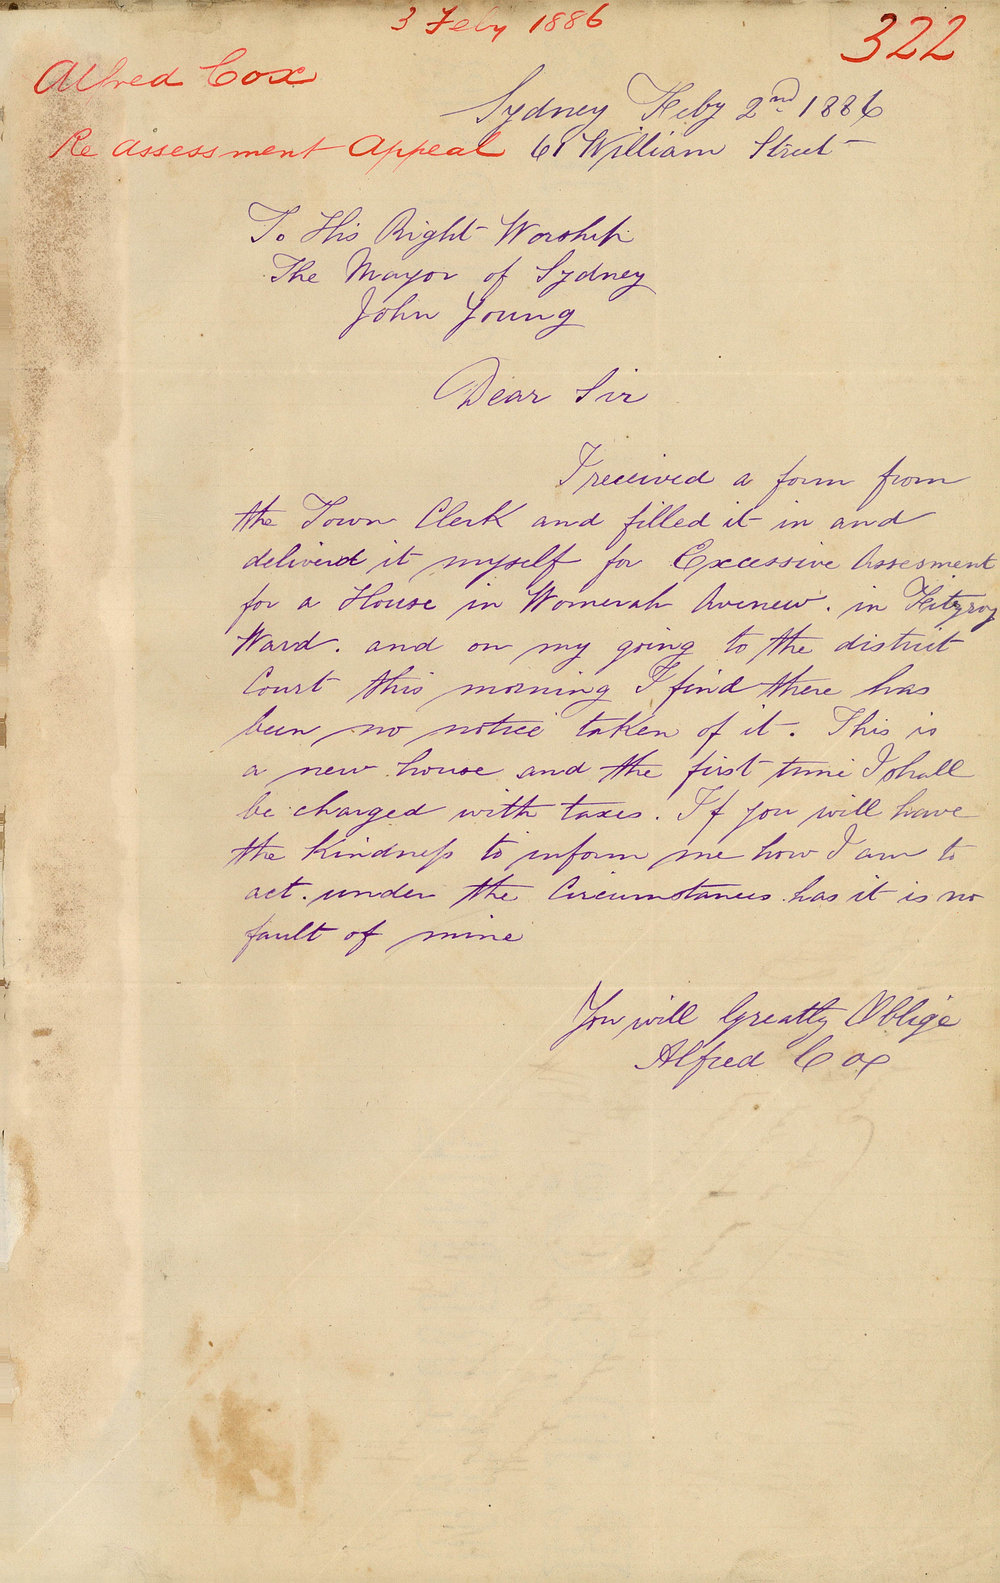 3 Feby 1886
322
Alfred Cox
Sydney Feby 2nd 1886
Re assessment Appeal
61 William Street
To His Right Worship
The Mayor of Sydney
John Young
Dear Sir
I received a form from
the Town Clerk and filled it in and
deliverd it myself for Excessive Assesment
for a House in Womerah Avenew. in Fitzroy
Ward. and on my going to the district
Court this morning I find there has
been no notice taken of it. This is
a new house and the first time I shall
be charged with taxes. If you will have
the Kindness to inform me how I am to
act. under the Circumstances has it is no
fault of mine
You will Greatly Oblige
Alfred Cox